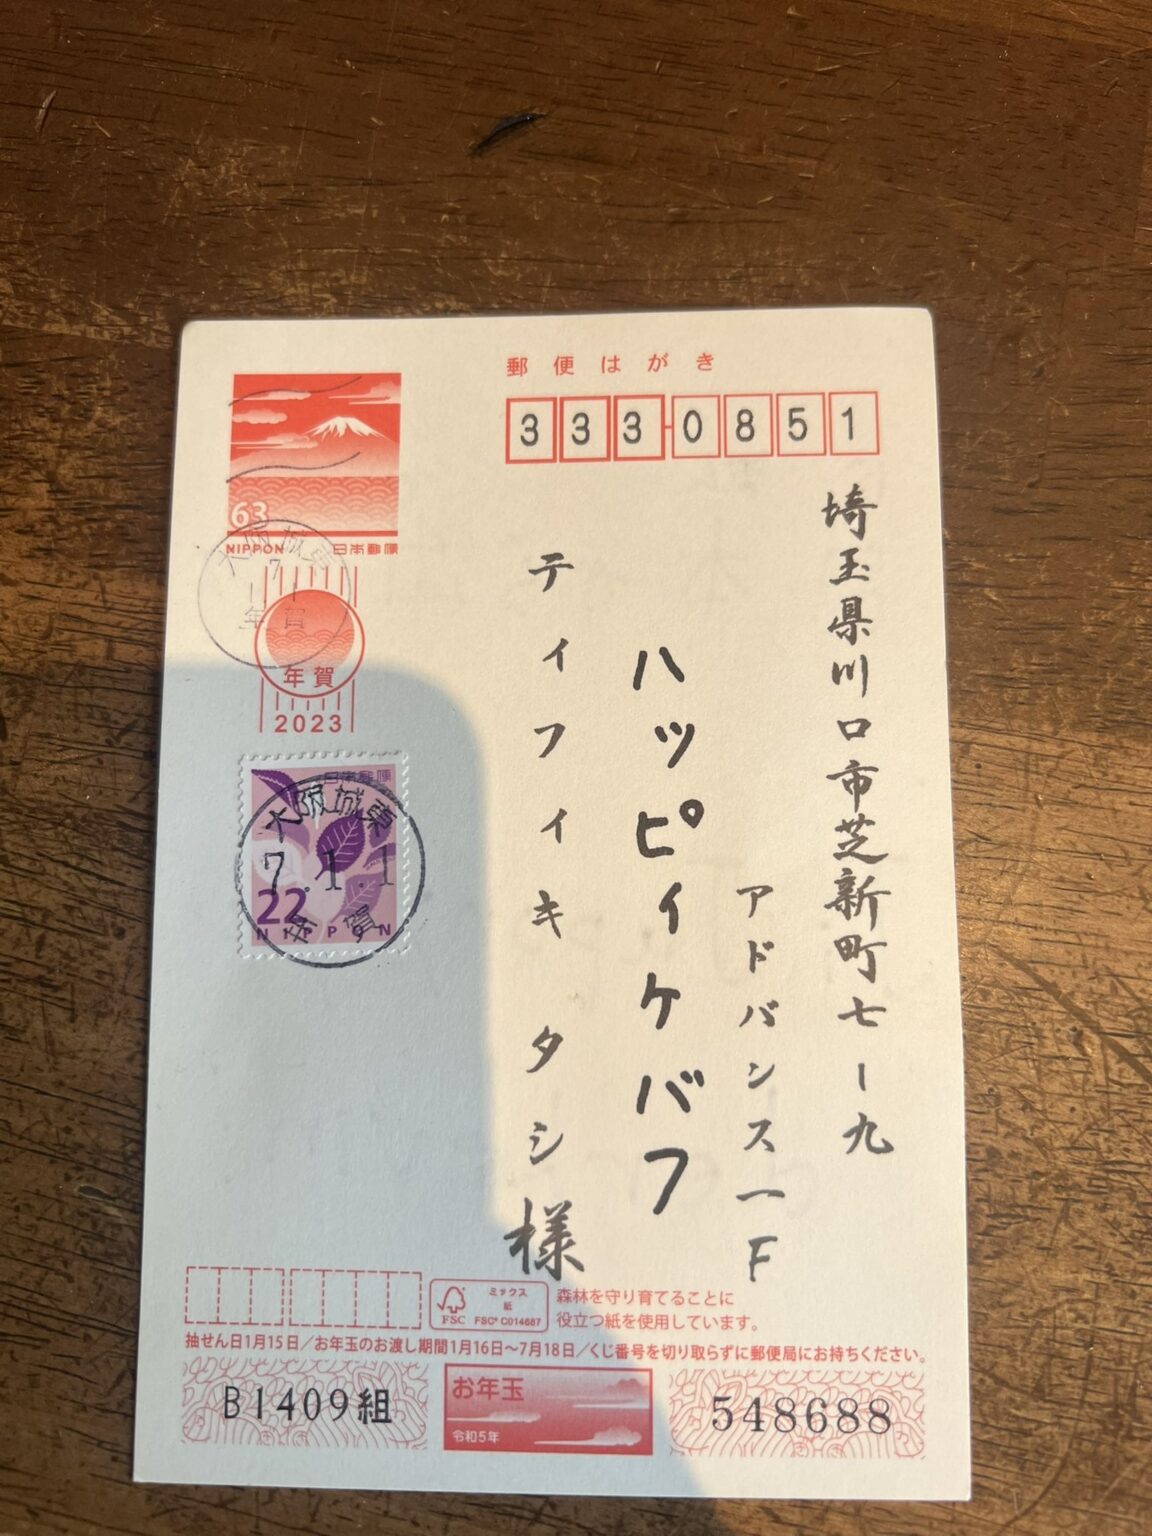 郵便はがき
333-0851
埼玉県川口市芝新町七ー九
アドバンス一F
ハッピィケバフ
ティフィキタシ様
63
NIPPON 日本郵便
大阪城東
7
1 1
年賀
年賀
2023
日本郵便
大阪城東
7.1.1
22
年賀
NIPPON
FSC
ミックス
紙
FSC® C014687
森林を守り育てることに
役立つ紙を使用しています。
抽せん日1月15日/お年玉のお渡し期間1月16日〜7月18日/くじ番号を切り取らずに郵便局にお持ちください。
B1409組
お年玉
令和5年
548688